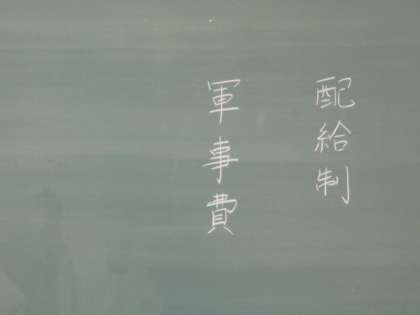 配給制
軍事費